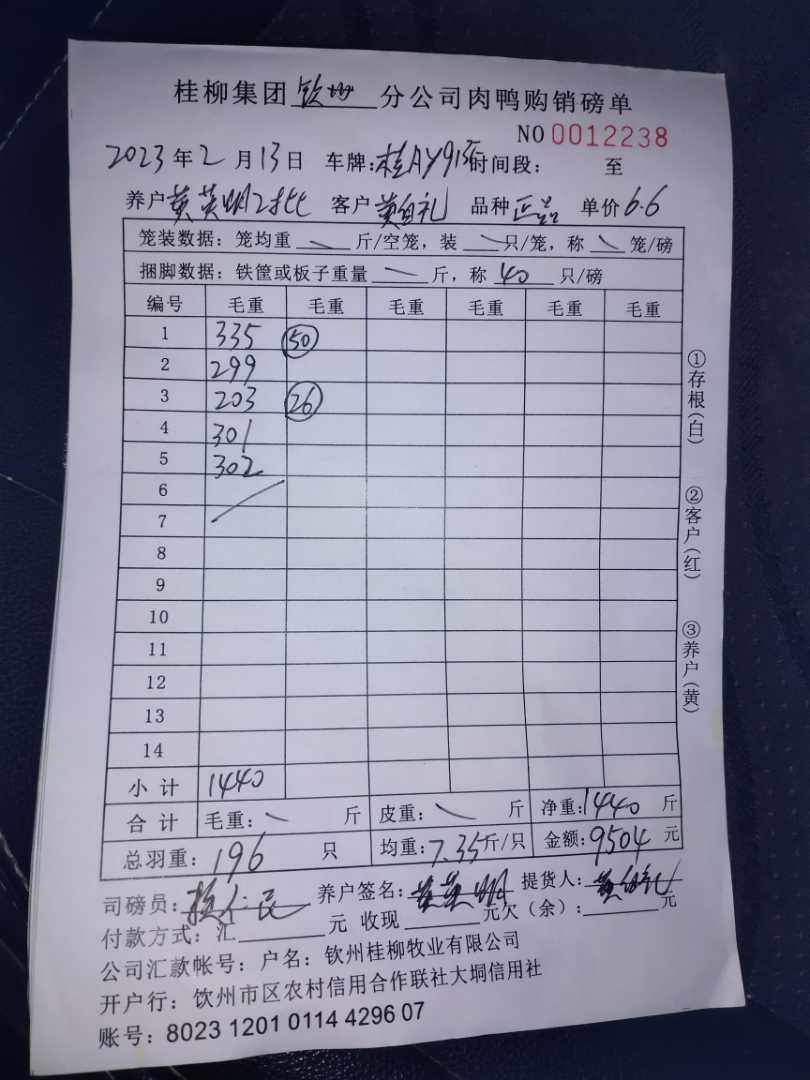 桂柳集团 钦州 分公司肉鸭购销磅单
NO 0012238
2023年2月13日 车牌:桂AY913 时间段: 至
养户 黄英明2批 客户 黄自礼 品种 正品 单价 6.6
笼装数据:笼均重 斤/空笼,装 只/笼,称 笼/磅
捆脚数据:铁筐或板子重量 斤,称 40 只/磅
编号 毛重 毛重 毛重 毛重 毛重 毛重
1 335 50
2 299
3 203 26
4 301
5 302
6
7
8
9
10
11
12
13
14
小计 1440
合计 毛重: 斤 皮重: 斤 净重:1440 斤
总羽重:196 只 均重:7.35斤/只 金额:9504元
司磅员: 养户签名:黄英明 提货人:
付款方式:汇 元 收现 元欠(余): 元
公司汇款帐号:户名:钦州桂柳牧业有限公司
开户行:饮州市区农村信用合作联社大垌信用社
账号:8023 1201 0114 4296 07
①存根(白)
②客户(红)
③养户(黄)